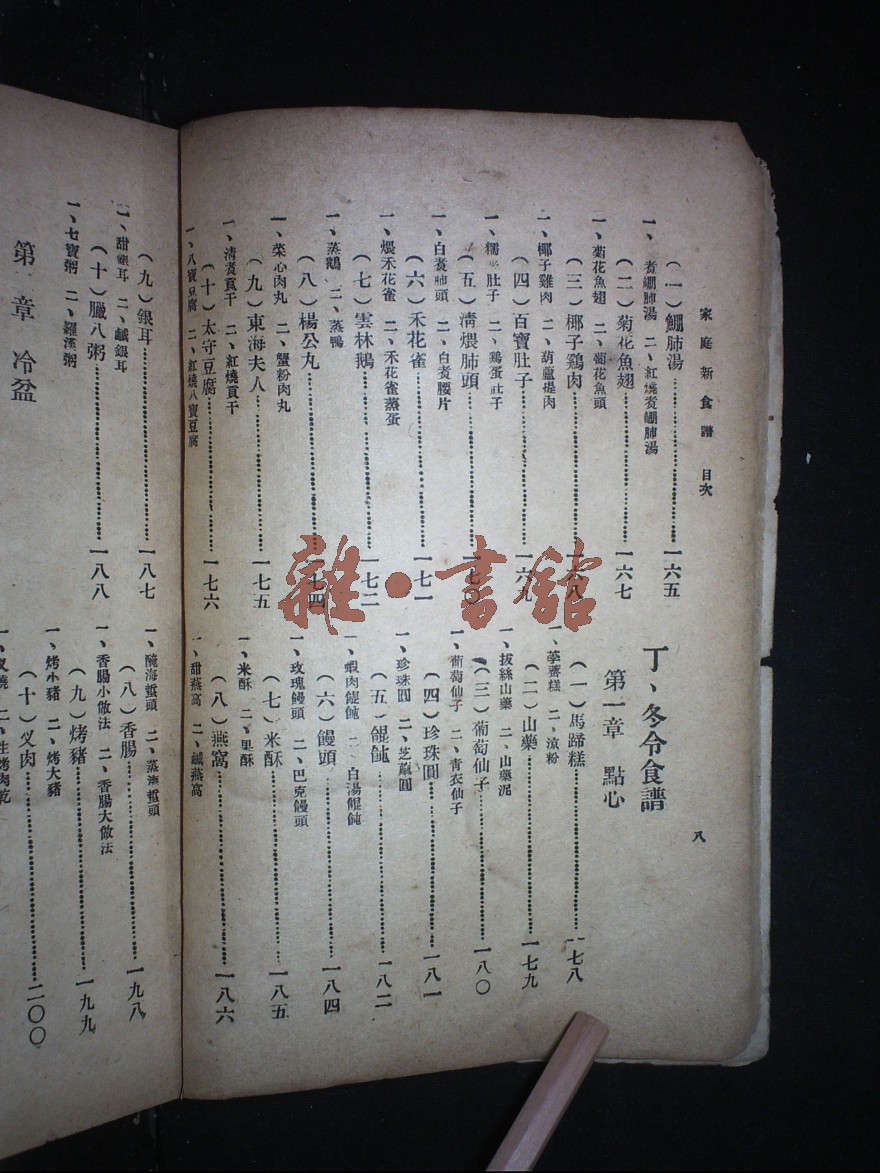 家庭新食譜 目次
八
（一）鮰肺湯 一六五
一、煮鮰肺湯 二、紅燒煮鮰肺湯
（二）菊花魚翅 一六七
一、菊花魚翅 二、菊花魚頭
（三）椰子鷄肉 一六八
一、椰子雞肉 二、葫蘆提肉
（四）百寶肚子 一六九
一、糯米肚子 二、鷄蛋肚子
（五）清煨肺頭 一七〇
一、白煮肺頭 二、白煮腰片
（六）禾花雀 一七一
一、煨禾花雀 二、禾花雀蒸蛋
（七）雲林鵝 一七二
一、蒸鵝 二、蒸鴨
（八）楊公丸 一七四
一、菜心肉丸 二、蟹粉肉丸
（九）東海夫人 一七五
一、清煮貢干 二、紅燒貢干
（十）太守豆腐 一七六
一、八寶豆腐 二、紅燒八寶豆腐
丁、冬令食譜
第一章 點心
（一）馬蹄糕 一七八
一、荸薺糕 二、涼粉
（二）山藥 一七九
一、拔絲山藥 二、山藥泥
（三）葡萄仙子 一八〇
一、葡萄仙子 二、青衣仙子
（四）珍珠圓 一八一
一、珍珠圓 二、芝蔴圓
（五）餛飩 一八二
一、蝦肉餛飩 二、白湯餛飩
（六）饅頭 一八四
一、玫瑰饅頭 二、巴克饅頭
（七）米酥 一八五
一、米酥 二、果酥
（八）燕窩 一八六
一、甜燕窩 二、鹹燕窩
（九）銀耳 一八七
一、甜銀耳 二、鹹銀耳
（十）臘八粥 一八八
一、七寶粥 二、羅漢粥
第 章 冷盆
一、醃海蜇頭 二、蒸海蜇頭
（八）香腸 一九八
一、香腸小做法 二、香腸大做法
（九）烤豬 一九九
一、烤小豬 二、烤大豬
（十）叉肉 二〇〇
一、叉燒 二、生烤肉乾
雜·書館